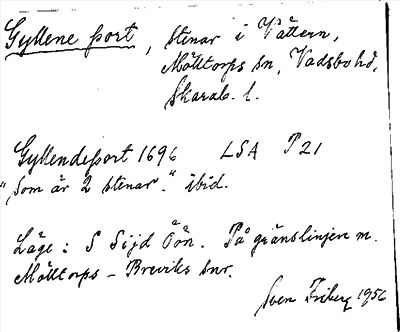 Gyllene port, stenar i Vättern,
Mölltorps sn, Vadsbo hd,
Skarab. l.
Gyllendeport 1696 LSA P21
"som är 2 stenar." ibid.
Läge: S Sijd Öön. På gränslinjen m.
Mölltorps - Breviks snr.
Sven Friberg 1956